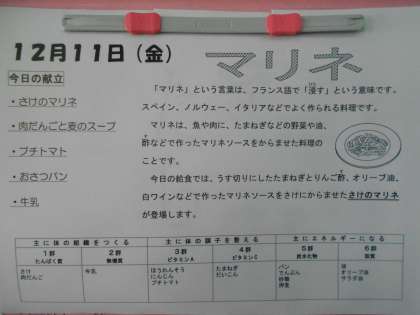 12月11日（金）
マリネ
今日の献立
・さけのマリネ
・肉だんごと麦のスープ
・プチトマト
・おさつパン
・牛乳
「マリネ」という言葉は、フランス語で「浸す」という意味です。
スペイン、ノルウェー、イタリアなどでよく作られる料理です。
マリネは、魚や肉に、たまねぎなどの野菜や油、
酢などで作ったマリネソースをからませた料理の
ことです。
今日の給食では、うす切りにしたたまねぎとりんご酢、オリーブ油、
白ワインなどで作ったマリネソースをさけにからませたさけのマリネ
が登場します。
主に体の組織をつくる 主に体の調子を整える 主にエネルギーになる
1群 2群 3群 4群 5群 6群
たんぱく質 無機質 ビタミンA ビタミンC 炭水化物 脂質
さけ 牛乳 ほうれんそう たまねぎ パン 油
肉だんご にんじん だいこん でんぷん オリーブ油
プチトマト 砂糖 サラダ油
押麦